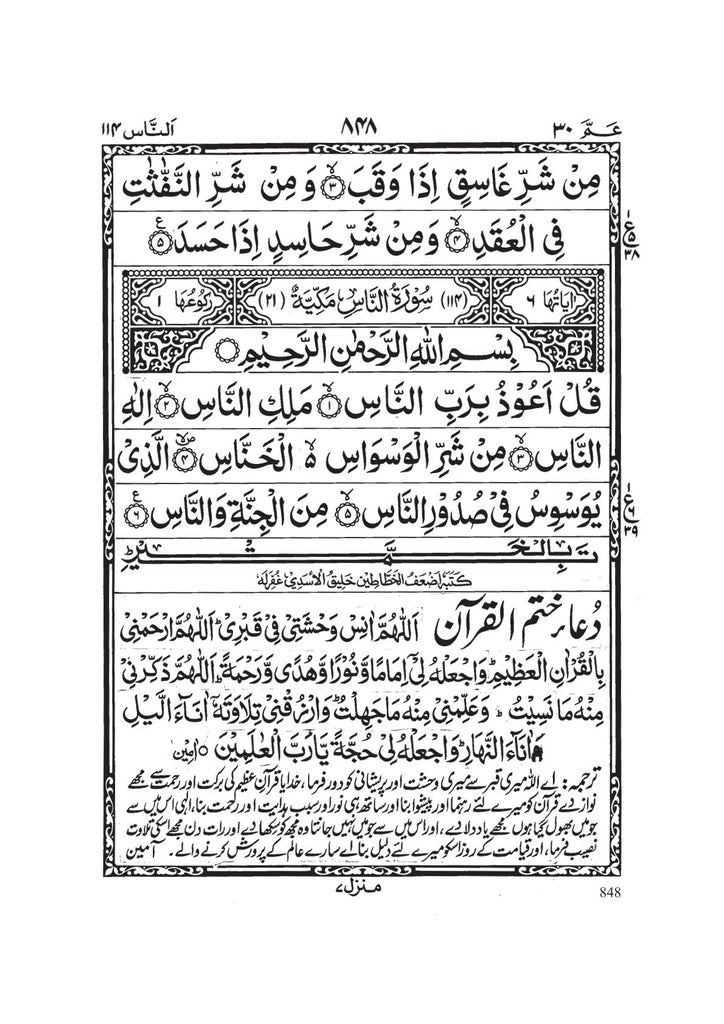 عَـمَّ ٣٠ ٨٤٨ اَلنَّاس ١١٤
مِنْ شَرِّ غَاسِقٍ اِذَا وَقَبَ ۙ﴿۳﴾ وَ مِنْ شَرِّ النَّفّٰثٰتِ
فِی الْعُقَدِ ۙ﴿۴﴾ وَ مِنْ شَرِّ حَاسِدٍ اِذَا حَسَدَ ﴿۵﴾
ع ۱ ۵ ۳۸
اٰیَاتُهَا ٦ (١١٤) سُوْرَةُ النَّاسِ مَكِّیَّةٌ (٢١) رُكُوْعُهَا ١
بِسْمِ اللهِ الرَّحْمٰنِ الرَّحِیْمِ
قُلْ اَعُوْذُ بِرَبِّ النَّاسِ ۙ﴿۱﴾ مَلِكِ النَّاسِ ۙ﴿۲﴾ اِلٰهِ
النَّاسِ ۙ﴿۳﴾ مِنْ شَرِّ الْوَسْوَاسِ ۙ۬ الْخَنَّاسِ ﴿۴﴾ الَّذِیْ
یُوَسْوِسُ فِیْ صُدُوْرِ النَّاسِ ۙ﴿۵﴾ مِنَ الْجِنَّةِ وَ النَّاسِ ﴿۶﴾
ع ۱ ٦ ۳۹
تَمَّتْ بِالْخَیْرِ
كَتَبَهٗ اَضْعَفُ الْخَطَّاطِیْن خَلِیْقُ الْاَسَدِیْ غُفِرَلَهٗ
دُعائے ختم القرآن اَللّٰهُمَّ اٰنِسْ وَحْشَتِیْ فِیْ قَبْرِیْ ؕ اَللّٰهُمَّ ارْحَمْنِیْ
بِالْقُرْاٰنِ الْعَظِیْمِ ؕ وَاجْعَلْهُ لِیْٓ اِمَامًا وَّ نُوْرًا وَّ هُدًی وَّ رَحْمَةً ؕ اَللّٰهُمَّ ذَكِّرْنِیْ
مِنْهُ مَا نَسِیْتُ ؕ وَ عَلِّمْنِیْ مِنْهُ مَا جَهِلْتُ ؕ وَ ارْزُقْنِیْ تِلَاوَتَهٗٓ اٰنَآءَ الَّیْلِ
وَ اٰنَآءَ النَّهَارِ ؕ وَاجْعَلْهُ لِیْ حُجَّةً یَّا رَبَّ الْعٰلَمِیْنَ ۝ اٰمِیْن
ترجمہ: اے اللہ میری قبر سے میری وحشت اور پریشانی کو دور فرما، خدایا قرآنِ عظیم کی برکت اور رحمت سے مجھے
نواز دے قرآن کو میرے لئے رہنما اور پیشوا بنا اور ساتھ ہی نور اور سببِ ہدایت اور رحمت بنا، الٰہی اس میں سے
جو میں بھول گیا ہوں مجھے یاد دلا دے، اور اس میں سے جو میں نہیں جانتا وہ مجھ کو سکھا دے اور رات دن مجھے اسکی تلاوت
نصیب فرما، اور قیامت کے روز اسکو میرے لئے دلیل بنا اے سارے عالم کے پرورش کرنے والے۔ آمین
منزل ۷
848